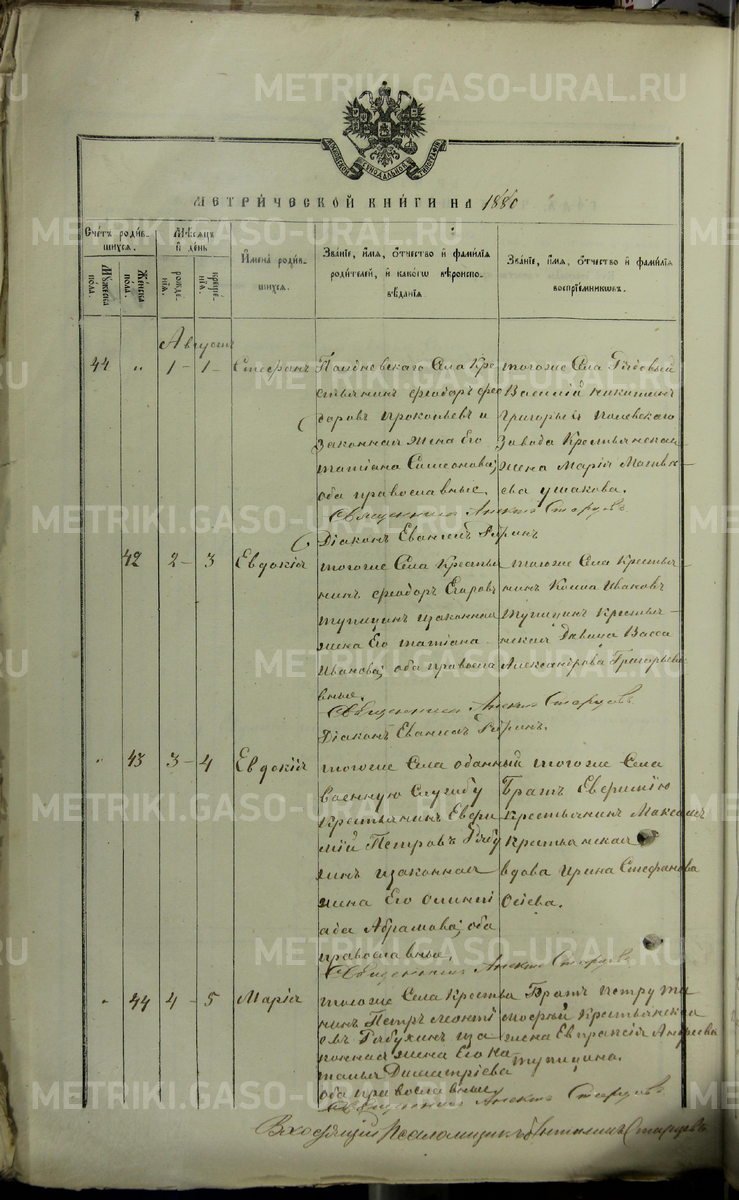 METRIKI.GASO-URAL.RU
МОСКОВСКОЙ СУНОДАЛЬНОЙ ТИПОГРАФІИ
МЕТРИЧЕСКОЙ КНИГИ НА 1880
Счетъ родив-
шихся.
Мужеска пола.
Женска пола.
Мѣсяцъ
и день
рожде-
нія.
креще-
нія.
Имена родив-
шихся.
Званіе, имя, отчество и фамилія
родителей, и какого вѣроиспо-
вѣданія.
Званіе, имя, отчество и фамилія
воспріемниковъ.
Августъ
44 " 1 - 1 - Стефанъ
Села Кре
стьянинъ Феодоръ Фео
доровъ Прокопьевъ и
Законная жена Его
Татіана Симеонова;
оба православные.
тогоже Села Рядовый
Василій Никитинъ
Григорьи Полевскаго
Завода Крестьянская
жена Марія Матвѣ
ева Ушакова.
Священникъ Старцевъ
Діаконъ
42 2 - 3 Евдокія
тогоже Села Крестья
нинъ Феодоръ Егоровъ
Тупицинъ изаконная
жена Его Татіана
Иванова; оба правосла
вные.
тогоже Села Крестья
нинъ Косма Ивановъ
Тупицинъ Крестья
нская Дѣвица Васса
Александрова Григорьева
Священникъ Старцевъ
Діаконъ
" 43 3 - 4 Евдокія
тогоже Села
военную Службу
Крестьянинъ Евфи
мій Петровъ Рябу
хинъ изаконная
жена Его Олимпі
ада Абрамова; оба
православные.
тогоже Села
Братъ Евфимію
Крестьянинъ Максимъ
Крестьянская
вдова Ирина Стефанова
Осіева.
Священникъ Старцевъ
" 44 4 - 5 Марія
тогоже Села Крестья
нинъ Петръ Леонті
овъ Рябухинъ иза
конная жена Его На
талья Димитріева
оба православные
Братъ Петру Ти
мофѣй Крестьянская
жена Евпраксія Андреева
Тупицина.
Священникъ Старцевъ
Псаломщика Старцевъ